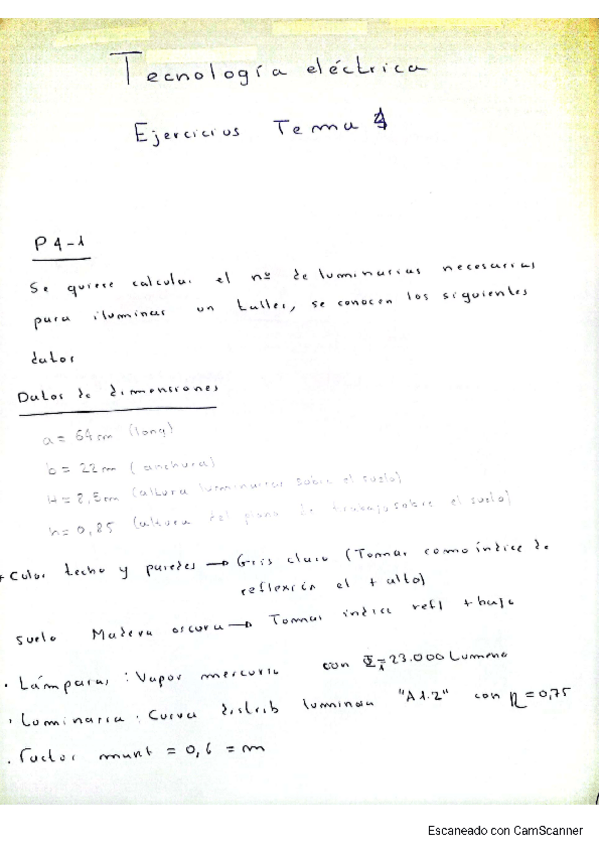 Tecnología eléctrica
Ejercicios Tema 4
P4-1
Se quiere calcular el nº de luminarias necesarias
para iluminar un taller, se conocen los siguientes
datos
Datos de dimensiones
a = 64m (long)
b = 22m (anchura)
H = 8,5m (altura luminarias sobre el suelo)
h = 0,85 (altura del plano de trabajo sobre el suelo)
+ Color techo y paredes → Gris claro (Tomar como índice de
reflexión el + alto)
suelo Madera oscura → Tomar indice refl + bajo
· Lámparas : Vapor mercurio con Φ₁=23.000 Lumens
· Luminaria : Curva distrib luminosa "A1.2" con η = 0,75
· Factor mant = 0,6 = m
Escaneado con CamScanner